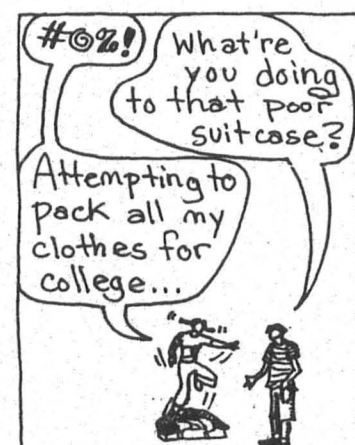 #@%!
What're
you doing
to that poor
suitcase?
Attempting to
pack all my
clothes for
college...